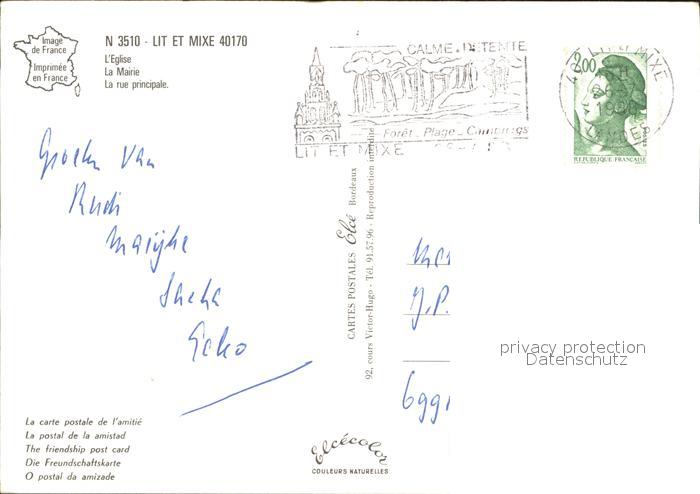 Image
de France
Imprimée
en France
N 3510 - LIT ET MIXE 40170
L'Eglise
La Mairie
La rue principale.
CALME. DETENTE
Forêt _ Plage _ Campings
LIT ET MIXE
LIT ET MIXE
LANDES
2,00
REPUBLIQUE FRANÇAISE
Groeten van
Rudi
Marijke
Sacha
Ecko
CARTES POSTALES Elcé Bordeaux
92, cours Victor-Hugo - Tél. 91.57.96 - Reproduction interdite
J.P.
6991
privacy protection
Datenschutz
La carte postale de l'amitié
La postal de la amistad
The friendship post card
Die Freundschaftskarte
O postal da amizade
Elcécolor
COULEURS NATURELLES